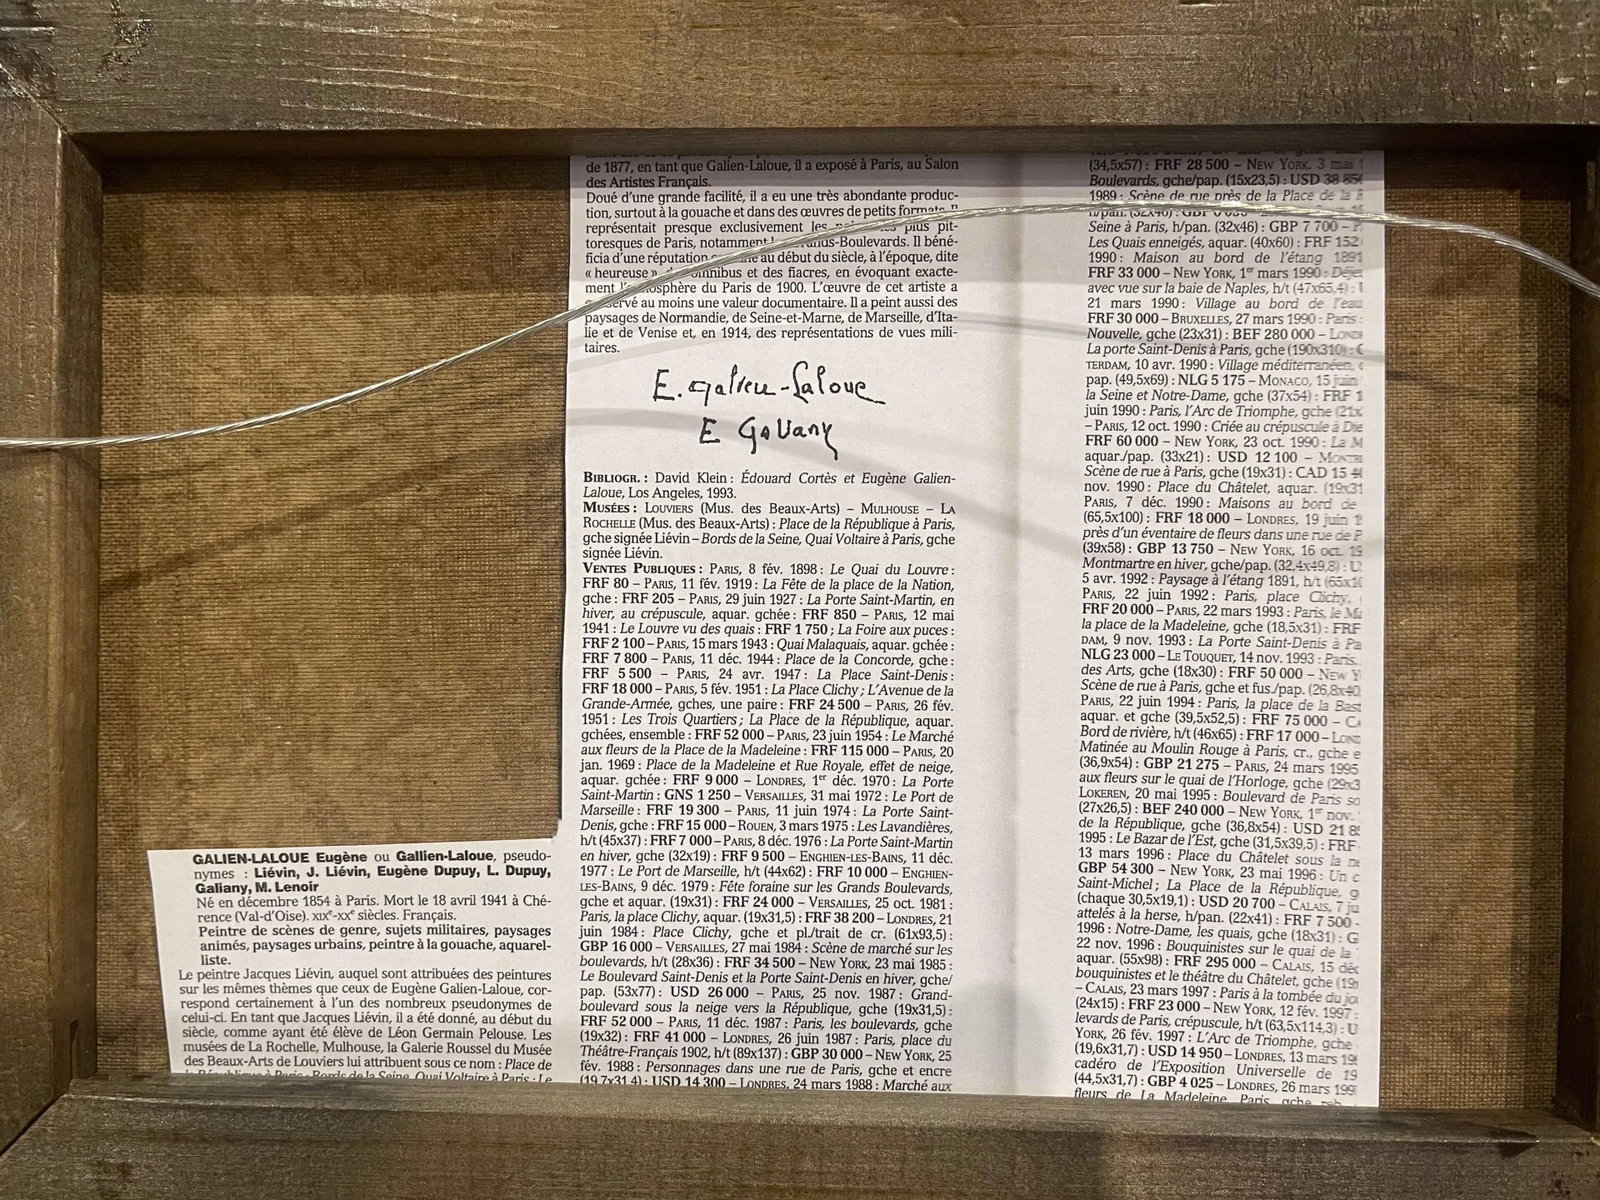 GALIEN-LALOUE Eugène ou Gallien-Laloue, pseudo-
nymes : Liévin, J. Liévin, Eugène Dupuy, L. Dupuy,
Galiany, M. Lenoir
Né en décembre 1854 à Paris. Mort le 18 avril 1941 à Ché-
rence (Val-d'Oise). XIXe-XXe siècles. Français.
Peintre de scènes de genre, sujets militaires, paysages
animés, paysages urbains, peintre à la gouache, aquarel-
liste.
Le peintre Jacques Liévin, auquel sont attribuées des peintures
sur les mêmes thèmes que ceux de Eugène Galien-Laloue, cor-
respond certainement à l'un des nombreux pseudonymes de
celui-ci. En tant que Jacques Liévin, il a été donné, au début du
siècle, comme ayant été élève de Léon Germain Pelouse. Les
musées de La Rochelle, Mulhouse, la Galerie Roussel du Musée
des Beaux-Arts de Louviers lui attribuent sous ce nom : Place de
la République à Paris ; Bords de la Seine, Quai Voltaire à Paris ; Le
de 1877, en tant que Galien-Laloue, il a exposé à Paris, au Salon
des Artistes Français.
Doué d'une grande facilité, il a eu une très abondante produc-
tion, surtout à la gouache et dans des œuvres de petits formats. Il
représentait presque exclusivement les plus pit-
toresques de Paris, notamment
ficia d'une réputation au début du siècle, à l'époque, dite
« heureuse » omnibus et des fiacres, en évoquant exacte-
ment l'atmosphère du Paris de 1900. L'œuvre de cet artiste a
conservé au moins une valeur documentaire. Il a peint aussi des
paysages de Normandie, de Seine-et-Marne, de Marseille, d'Ita-
lie et de Venise et, en 1914, des représentations de vues mili-
taires.
E. Galien-Laloue
E Galiany
BIBLIOGR. : David Klein : Édouard Cortès et Eugène Galien-
Laloue, Los Angeles, 1993.
MUSÉES : LOUVIERS (Mus. des Beaux-Arts) – MULHOUSE – LA
ROCHELLE (Mus. des Beaux-Arts) : Place de la République à Paris,
gche signée Liévin – Bords de la Seine, Quai Voltaire à Paris, gche
signée Liévin.
VENTES PUBLIQUES : PARIS, 8 fév. 1898 : Le Quai du Louvre :
FRF 80 – PARIS, 11 fév. 1919 : La Fête de la place de la Nation,
gche : FRF 205 – PARIS, 29 juin 1927 : La Porte Saint-Martin, en
hiver, au crépuscule, aquar. gchée : FRF 850 – PARIS, 12 mai
1941 : Le Louvre vu des quais : FRF 1 750 ; La Foire aux puces :
FRF 2 100 – PARIS, 15 mars 1943 : Quai Malaquais, aquar. gchée :
FRF 7 800 – PARIS, 11 déc. 1944 : Place de la Concorde, gche :
FRF 5 500 – PARIS, 24 avr. 1947 : La Place Saint-Denis :
FRF 18 000 – PARIS, 5 fév. 1951 : La Place Clichy ; L'Avenue de la
Grande-Armée, gches, une paire : FRF 24 500 – PARIS, 26 fév.
1951 : Les Trois Quartiers ; La Place de la République, aquar.
gchées, ensemble : FRF 52 000 – PARIS, 23 juin 1954 : Le Marché
aux fleurs de la Place de la Madeleine : FRF 115 000 – PARIS, 20
jan. 1969 : Place de la Madeleine et Rue Royale, effet de neige,
aquar. gchée : FRF 9 000 – LONDRES, 1er déc. 1970 : La Porte
Saint-Martin : GNS 1 250 – VERSAILLES, 31 mai 1972 : Le Port de
Marseille : FRF 19 300 – PARIS, 11 juin 1974 : La Porte Saint-
Denis, gche : FRF 15 000 – ROUEN, 3 mars 1975 : Les Lavandières,
h/t (45x37) : FRF 7 000 – PARIS, 8 déc. 1976 : La Porte Saint-Martin
en hiver, gche (32x19) : FRF 9 500 – ENGHIEN-LES-BAINS, 11 déc.
1977 : Le Port de Marseille, h/t (44x62) : FRF 10 000 – ENGHIEN-
LES-BAINS, 9 déc. 1979 : Fête foraine sur les Grands Boulevards,
gche et aquar. (19x31) : FRF 24 000 – VERSAILLES, 25 oct. 1981 :
Paris, la place Clichy, aquar. (19x31,5) : FRF 38 200 – LONDRES, 21
juin 1984 : Place Clichy, gche et pl./trait de cr. (61x93,5) :
GBP 16 000 – VERSAILLES, 27 mai 1984 : Scène de marché sur les
boulevards, h/t (28x36) : FRF 34 500 – NEW YORK, 23 mai 1985 :
Le Boulevard Saint-Denis et la Porte Saint-Denis en hiver, gche/
pap. (53x77) : USD 26 000 – PARIS, 25 nov. 1987 : Grand-
boulevard sous la neige vers la République, gche (19x31,5) :
FRF 52 000 – PARIS, 11 déc. 1987 : Paris, les boulevards, gche
(19x32) : FRF 41 000 – LONDRES, 26 juin 1987 : Paris, place du
Théâtre-Français 1902, h/t (89x137) : GBP 30 000 – NEW YORK, 25
fév. 1988 : Personnages dans une rue de Paris, gche et encre
(19,7x31,4) : USD 14 300 – LONDRES, 24 mars 1988 : Marché aux
(34,5x57) : FRF 28 500 – NEW YORK, 3 mai 1
Boulevards, gche/pap. (15x23,5) : USD 38
1989 : Scène de rue près de la Place de la
h/pan. (32x46) : GBP
Seine à Paris, h/pan. (32x46) : GBP 7 700 –
Les Quais enneigés, aquar. (40x60) : FRF 152
1990 : Maison au bord de l'étang 1891
FRF 33 000 – NEW YORK, 1er mars 1990 : Déjeu
avec vue sur la baie de Naples, h/t (47x65,4) :
21 mars 1990 : Village au bord de l'eau
FRF 30 000 – BRUXELLES, 27 mars 1990 : Paris :
Nouvelle, gche (23x31) : BEF 280 000 – LOND
La porte Saint-Denis à Paris, gche (190x310) :
TERDAM, 10 avr. 1990 : Village méditerranéen,
pap. (49,5x69) : NLG 5 175 – MONACO, 15 juin
la Seine et Notre-Dame, gche (37x54) : FRF 1
juin 1990 : Paris, l'Arc de Triomphe, gche (21x
– PARIS, 12 oct. 1990 : Criée au crépuscule à Die
FRF 60 000 – NEW YORK, 23 oct. 1990 : La M
aquar./pap. (33x21) : USD 12 100 – MONTR
Scène de rue à Paris, gche (19x31) : CAD 15 4
nov. 1990 : Place du Châtelet, aquar. (19x31
PARIS, 7 déc. 1990 : Maisons au bord de
(65,5x100) : FRF 18 000 – LONDRES, 19 juin 1
près d'un éventaire de fleurs dans une rue de P
(39x58) : GBP 13 750 – NEW YORK, 16 oct. 19
Montmartre en hiver, gche/pap. (32,4x49,8) : U
5 avr. 1992 : Paysage à l'étang 1891, h/t (65x
PARIS, 22 juin 1992 : Paris, place Clichy,
FRF 20 000 – PARIS, 22 mars 1993 : Paris, le Ma
la place de la Madeleine, gche (18,5x31) : FRF
DAM, 9 nov. 1993 : La Porte Saint-Denis à Pa
NLG 23 000 – LE TOUQUET, 14 nov. 1993 : Paris.
des Arts, gche (18x30) : FRF 50 000 – NEW Y
Scène de rue à Paris, gche et fus./pap. (26,8x40
PARIS, 22 juin 1994 : Paris, la place de la Bast
aquar. et gche (39,5x52,5) : FRF 75 000 – CA
Bord de rivière, h/t (46x65) : FRF 17 000 – LOND
Matinée au Moulin Rouge à Paris, cr., gche e
(36,9x54) : GBP 21 275 – PARIS, 24 mars 1995
aux fleurs sur le quai de l'Horloge, gche (29x3
LOKEREN, 20 mai 1995 : Boulevard de Paris so
(27x26,5) : BEF 240 000 – NEW YORK, 1er nov.
de la République, gche (36,8x54) : USD 21 8
1995 : Le Bazar de l'Est, gche (31,5x39,5) : FRF
13 mars 1996 : Place du Châtelet sous la
GBP 54 300 – NEW YORK, 23 mai 1996 : Un c
Saint-Michel ; La Place de la République, g
(chaque 30,5x19,1) : USD 20 700 – CALAIS, 7 ju
attelés à la herse, h/pan. (22x41) : FRF 7 500
1996 : Notre-Dame, les quais, gche (18x31) : G
22 nov. 1996 : Bouquinistes sur le quai de la
aquar. (55x98) : FRF 295 000 – CALAIS, 15 déc
bouquinistes et le théâtre du Châtelet, gche (19
– CALAIS, 23 mars 1997 : Paris à la tombée du jo
(24x15) : FRF 23 000 – NEW YORK, 12 fév. 1997 :
levards de Paris, crépuscule, h/t (63,5x114,3) : U
YORK, 26 fév. 1997 : L'Arc de Triomphe, gche
(19,6x31,7) : USD 14 950 – LONDRES, 13 mars 19
cadéro de l'Exposition Universelle de 19
(44,5x31,7) : GBP 4 025 – LONDRES, 26 mars 199
fleurs de La Madeleine, Paris, gche